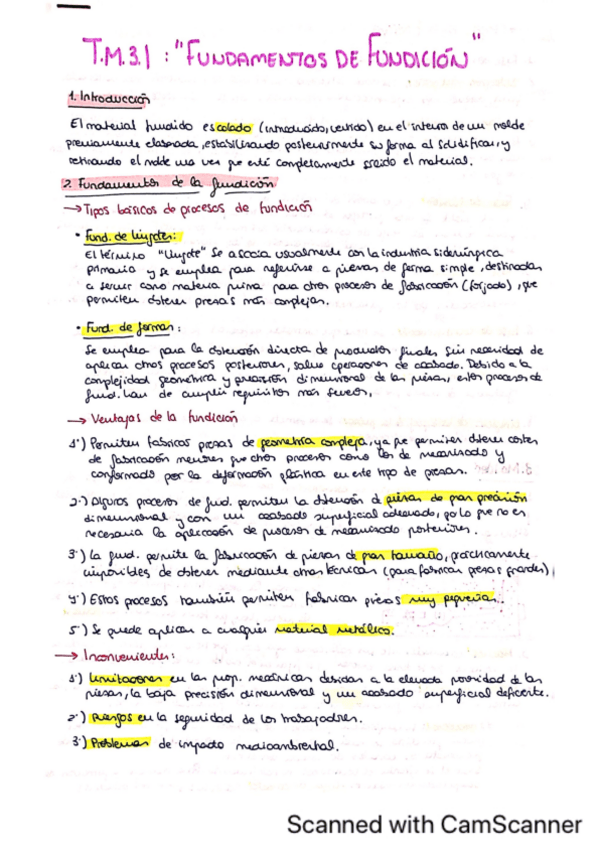 T.M.3.1 : "FUNDAMENTOS DE FUNDICIÓN"
1. Introducción
El material fundido es colado (introducido, vertido) en el interior de un molde
previamente elaborado, estabilizando posteriormente su forma al solidificar, y
retirando el molde una vez que esté completamente el material.
2. Fundamentos de la fundición
→ Tipos básicos de procesos de fundición
• Fund. de lingotes:
El término "lingote" se asocia usualmente con la industria siderúrgica
primaria y se emplea para referirse a piezas de forma simple, destinadas
a servir como materia prima para otros procesos de fabricación (forjado), que
permiten obtener piezas más complejas.
• Fund. de formas:
Se emplea para la obtención directa de productos finales sin necesidad de
aplicar otros procesos posteriores, salvo operaciones de acabado. Debido a la
complejidad geométrica y precisión dimensional de las piezas, estos procesos de
fund. han de cumplir requisitos más severos.
→ Ventajas de la fundición
1º) Permiten fabricar piezas de geometría compleja, ya que permiten obtener costes
de fabricación menores que otros procesos como los de mecanizado y
conformado por la deformación plástica en este tipo de piezas.
2º) Algunos procesos de fund. permiten la obtención de piezas de gran precisión
dimensional y con un acabado superficial adecuado, por lo que no es
necesaria la aplicación de procesos de mecanizado posteriores.
3º) La fund. permite la fabricación de piezas de gran tamaño, prácticamente
imposibles de obtener mediante otras técnicas (para fabricar piezas grandes)
4º) Estos procesos también permiten fabricar piezas muy pequeñas.
5º) Se puede aplicar a cualquier material metálico.
→ Inconvenientes:
1º) Limitaciones en las prop. mecánicas debidas a la elevada porosidad de las
piezas, la baja precisión dimensional y un acabado superficial deficiente.
2º) Riesgos en la seguridad de los trabajadores.
3º) Problemas de impacto medioambiental.
Scanned with CamScanner